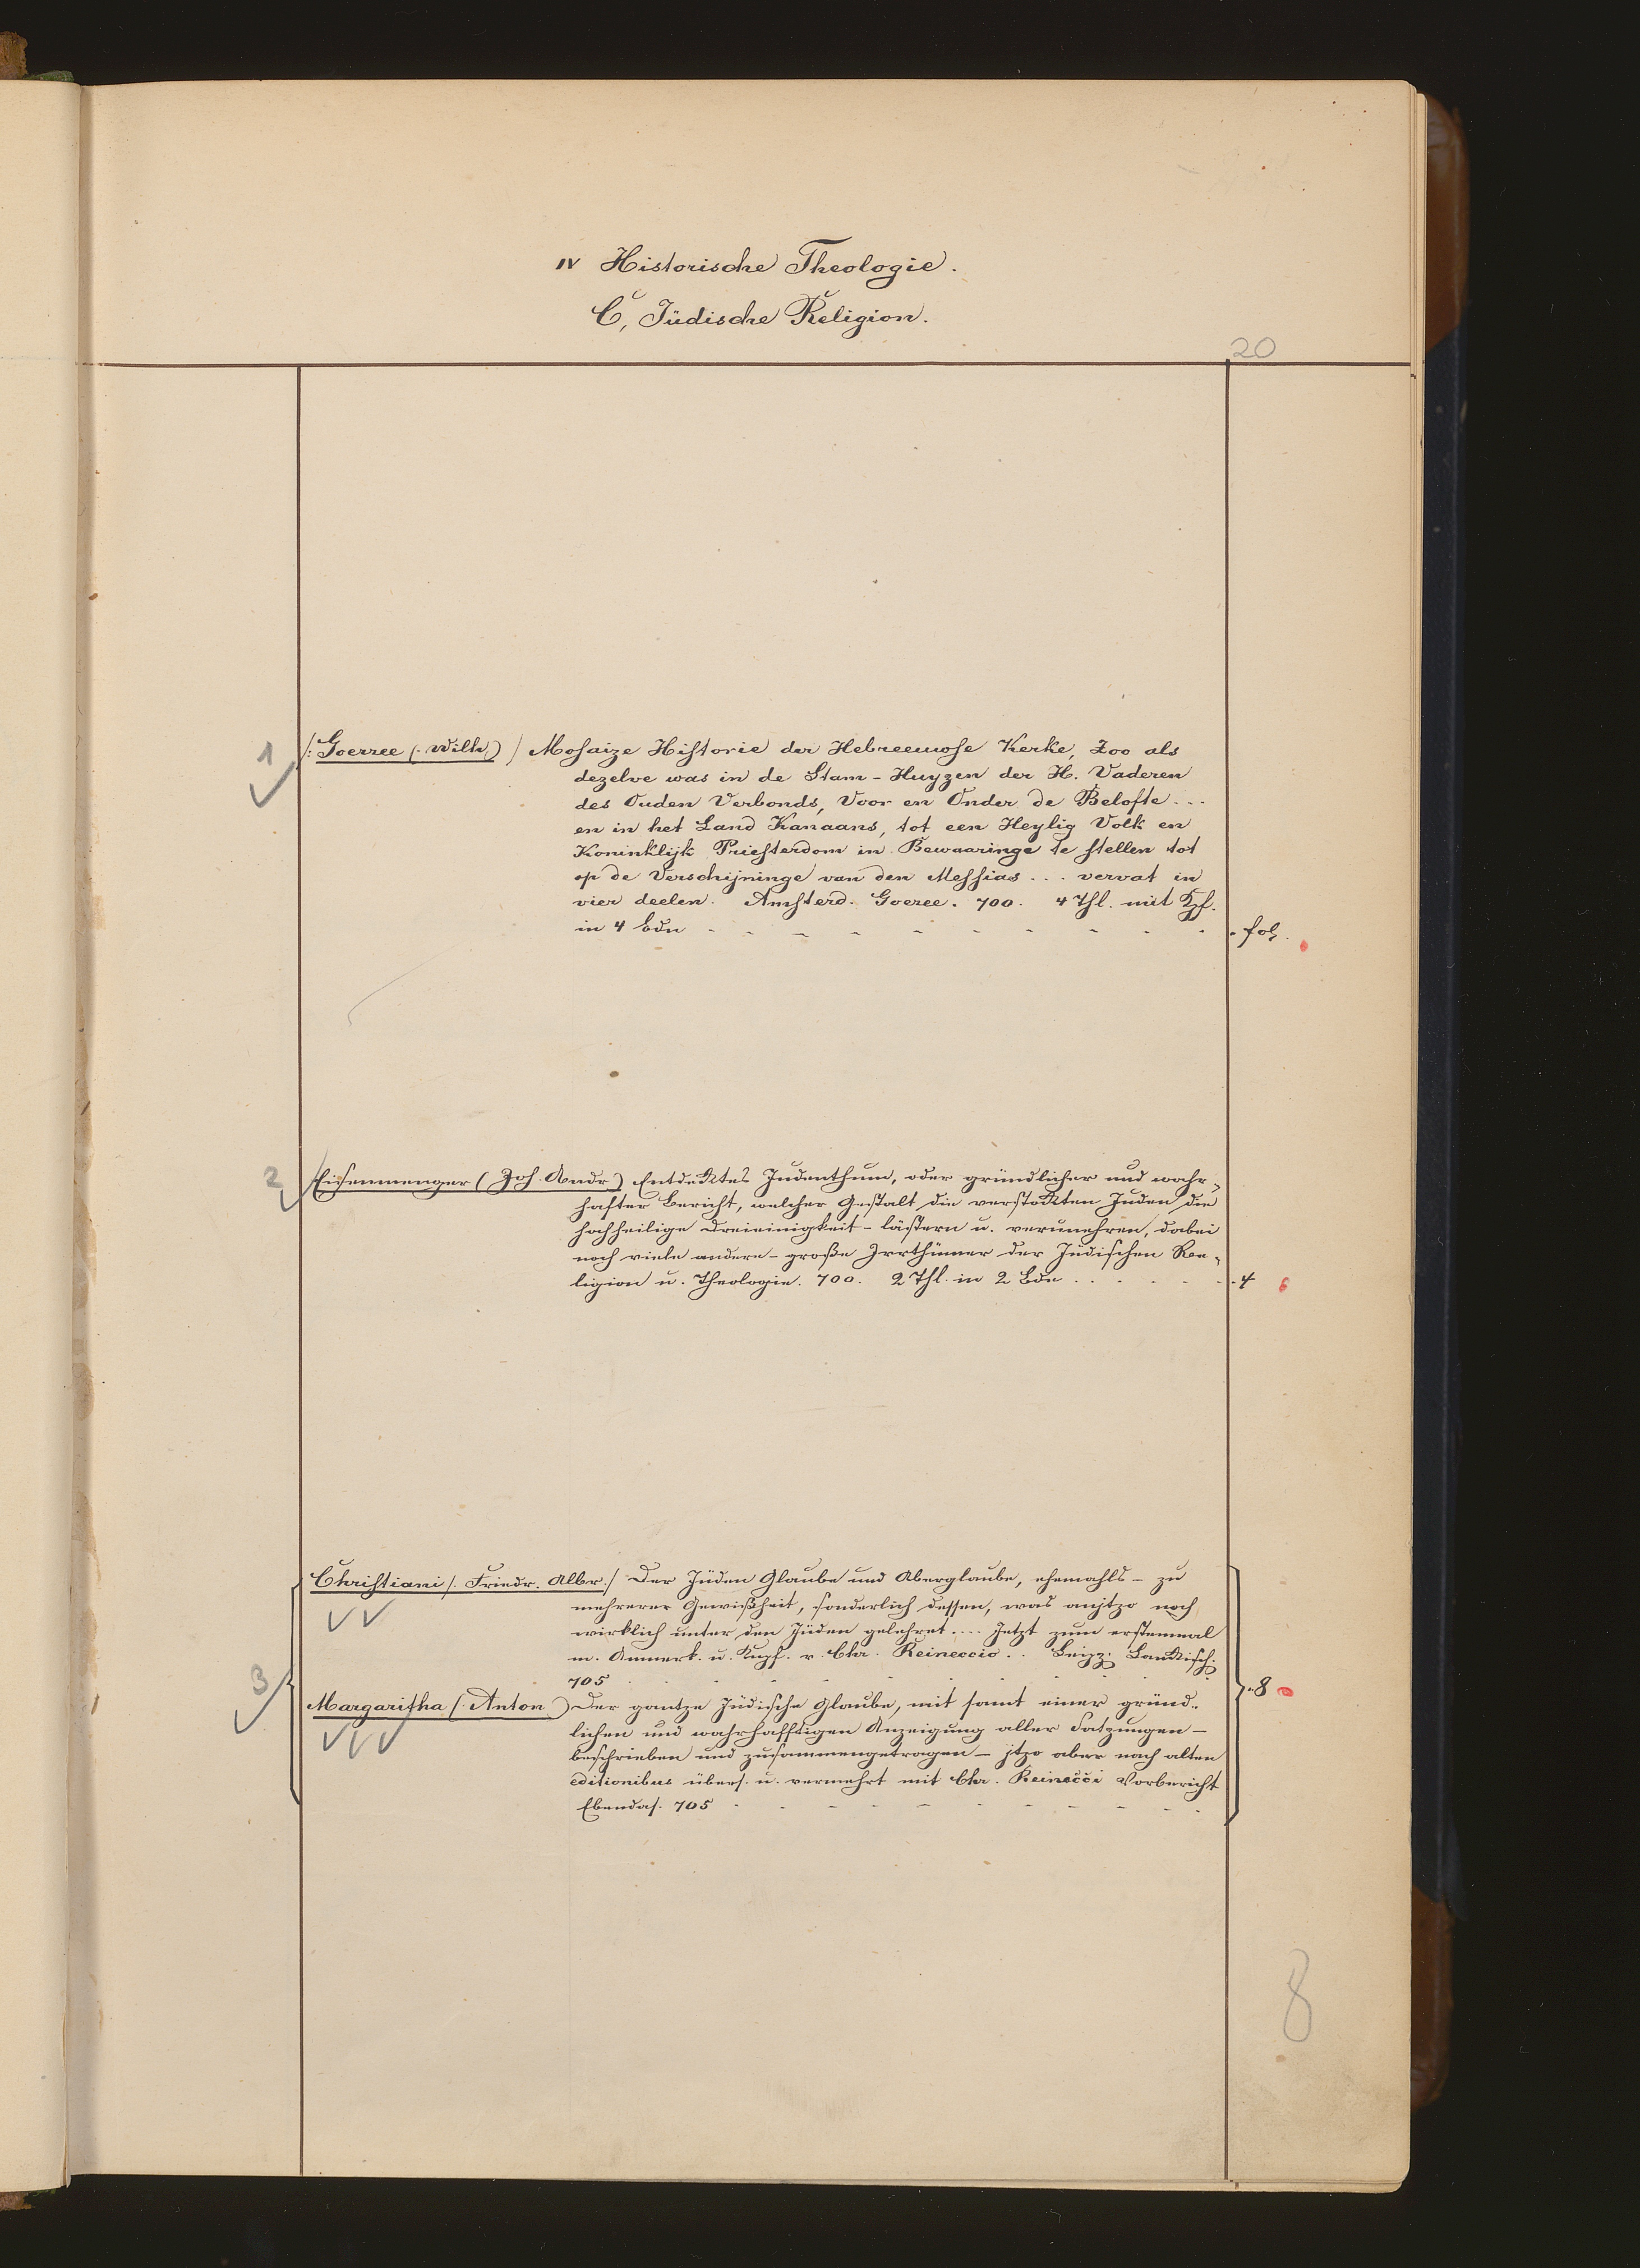 IV Historische Theologie.
C, Jüdische Religion.
20
1 /: Goerree (. Wilh) / Mosaize Historie der Hebreeuwse Kerke, Zoo als
dezelve was in de Stam-Huyzen der H. Vaderen
des Ouden Verbonds, Voor en Onder de Belofte...
en in het Land Kanaans, tot een Heylig Volk en
Koninklijk Priesterdom in Bewaaringe te stellen tot
op de Verschijninge van den Messias... vervat in
vier deelen. Amsterd. Goeree. 700. 4 Thl. mit Kpf.
in 4 Bdn - - - - - - - - - - fol.
2 Eisenmenger (Joh. Andr) Entdektes Judenthum, oder gründlicher und wahr-
hafter Bericht, welcher Gestalt die verstokten Juden die
hochheilige Dreieinigkeit - lästern u. verunehren, dabei
noch viele andere - große Irrthümer der Jüdischen Re-
ligion u. Theologie. 700. 2 Thl. in 2 Bdn . . . . . . 4
Christiani /. Friedr. Albr./ Der Jüden Glaube und Aberglaube, ehemahls - zu
mehrerer Gewißheit, sonderlich dessen, was anjtzo noch
wirklich unter den Jüden gelehret.... Jetzt zum erstenmal
m. Anmerk. u. Kupf. v. Chr. Reineccio.. Leipz. Lankisch.
705 . . . . . . . . .
3
8
Margaritha (. Anton) Der gantze Jüdische Glaube, mit samt einer gründ-
lichen und wahrhafftigen Anzeigung aller Satzungen -
beschrieben und zusammengetragen - jtzo aber nach alten
editionibus übers. u. vermehrt mit Chr. Reinecci Vorbericht
Ebendas. 705 - - - - - - - - - -
8